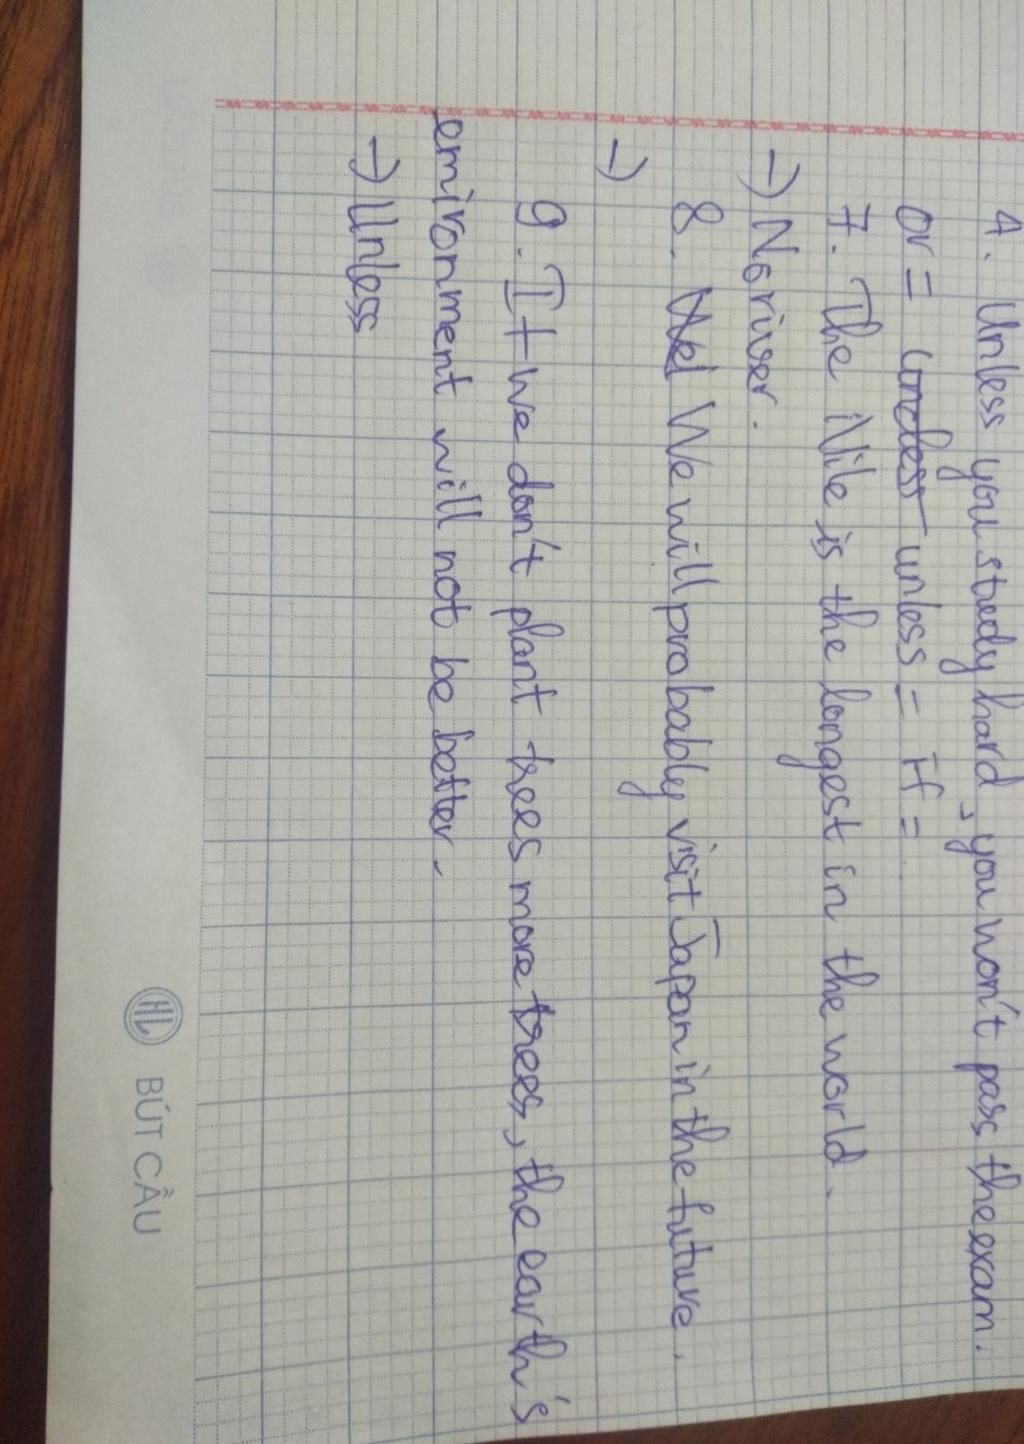 4. Unless you study hard, you won't pass the exam.
or = unless = if =
7. The Nile is the longest in the world.
→ No river.
8. We will probably visit Japan in the future.
→
9. If we don't plant trees more trees, the earth's
environment will not be better.
→ Unless
HL BÚT CẦU